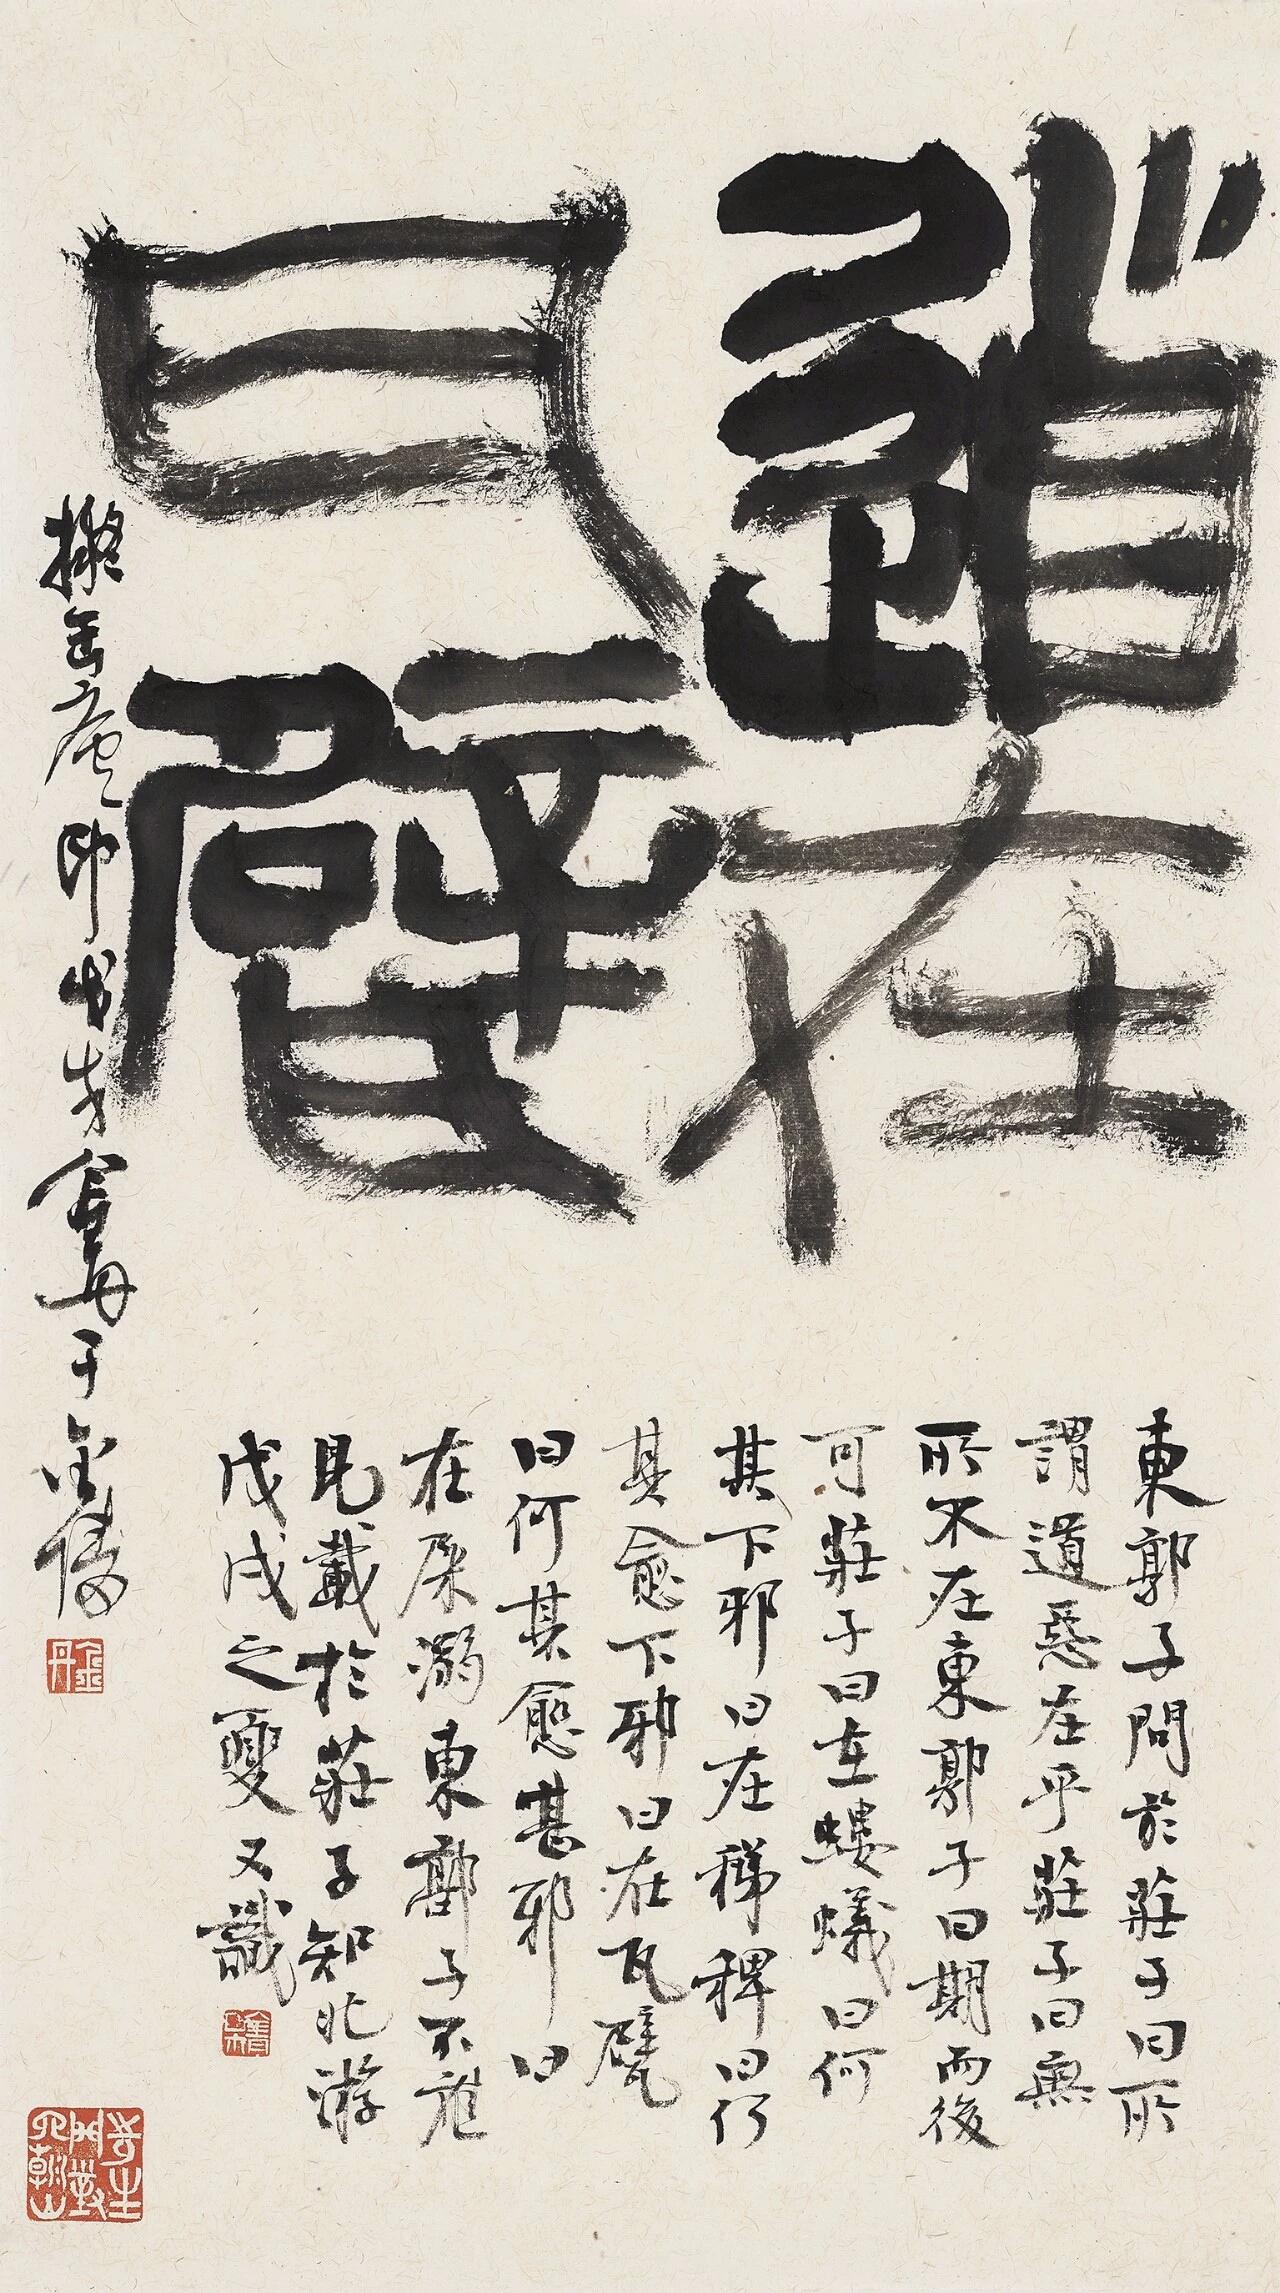 道在
瓦甓
擬缶廬印于金陵
東郭子問於莊子曰所
謂道惡在乎莊子曰無
所不在東郭子曰期而後
可莊子曰在螻蟻曰何
其下邪曰在稊稗曰何
其愈下邪曰在瓦甓
曰何其愈甚邪曰
在屎溺東郭子不應
見載於莊子知北游
戊戌之夏又識